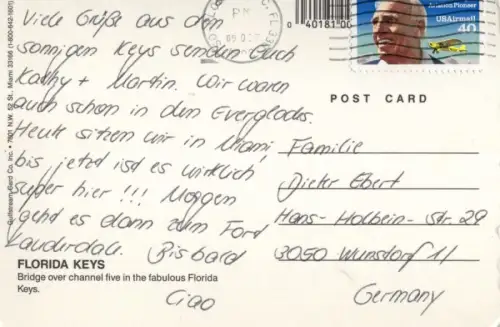 Viele Grüße aus den
sonnigen Keys senden Euch
Kathy + Martin. Wir waren
auch schon in den Everglades.
Heute sitzen wir in Miami,
bis jetzt ist es wirklich
super hier!!! Morgen
geht es dann zum Ford
Lauderdale. Bis bald
Ciao
FLORIDA KEYS
Bridge over channel five in the fabulous Florida
Keys.
Gulfstream Card Co. Inc. • 7801 N.W. 52 St., Miami 33166 (1-800-642-1601)
0 40181 00
Aviation Pioneer
US Airmail
40
PM
FL
POST CARD
Familie
Dieter Ebert
Hans-Holbein-Str. 29
3050 Wunstorf 11
Germany